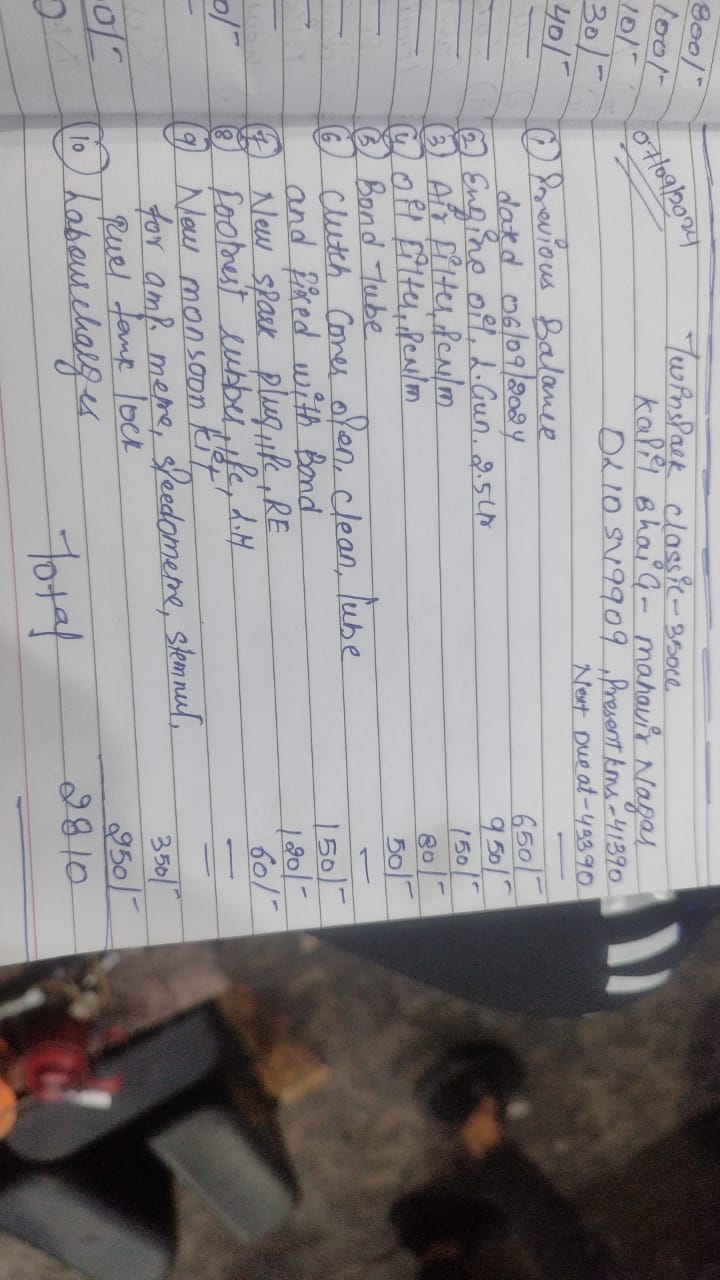 800/-
100/-
10/-
30/-
40/-
07/09/2024
Twinspark Classic-350cc
Kapil Bhai G- Mahavir Nagar
DL10SV9909, Present kms-41390
Next Due at-43390
① Previous Balance —
dated 06/09/2024 650/-
② Engine oil, L.Gun. 2.5Ltr 950/-
③ Air filter, 1Pc N/m 150/-
④ Oil filter, 1Pc N/m 80/-
⑤ Bond Tube 50/-
⑥ Clutch Cover open, clean, Tube —
and fixed with Bond 150/-
⑦ New spark plug, 1Pc, RE 120/-
⑧ Footrest rubber, 1Pc, L.H 60/-
⑨ New monsoon kit —
for amp. metre, speedometre, stemnut, —
fuel tank lock 350/-
⑩ Labour charges 250/-
Total 2810